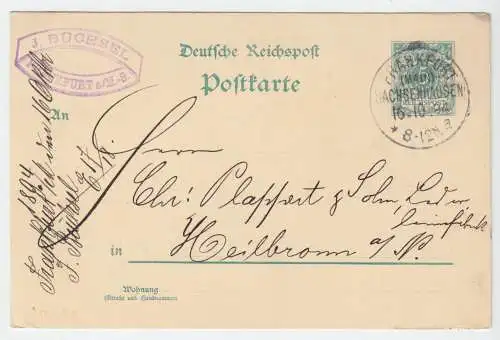 J. BÜCHSEL
FRANKFURT a/M.-S.
Deutsche Reichspost
Postkarte
FRANKFURT
(MAIN)
SACHSENHAUSEN
16.10.94
* 8-12N. a
An
Herrn
Chr: Plappert & Sohn, Led u
leimfabrik
in Heilbronn a/N.
Wohnung
(Straße und Hausnummer)
Frankfurt a/M den 16 Oktb 1894
J. Büchsel